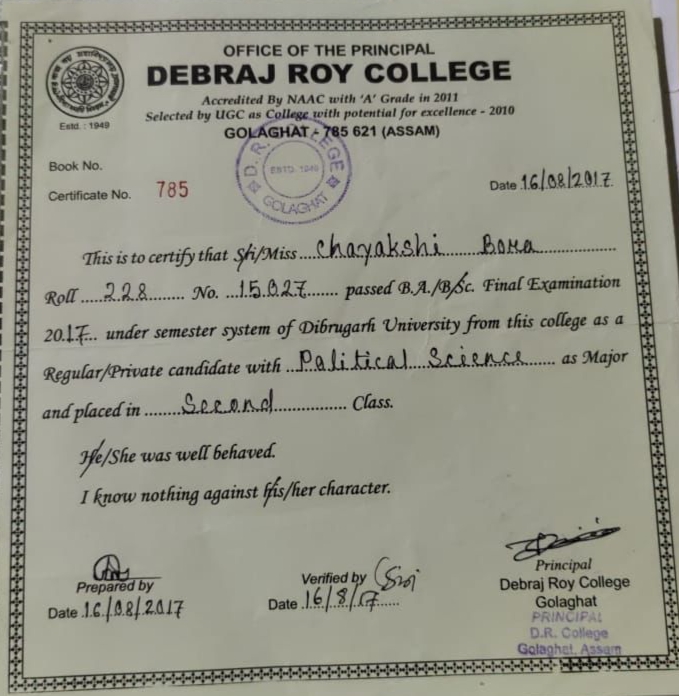 OFFICE OF THE PRINCIPAL
DEBRAJ ROY COLLEGE
Accredited By NAAC with 'A' Grade in 2011
Selected by UGC as College with potential for excellence - 2010
GOLAGHAT - 785 621 (ASSAM)
Estd. : 1949
D. R. COLLEGE
ESTD. 1949
GOLAGHAT
Book No.
Certificate No. 785
Date 16/08/2017
This is to certify that Sri/Miss Chayakshi Bora
Roll 228 No. 15027 passed B.A./B.Sc. Final Examination
2017 under semester system of Dibrugarh University from this college as a
Regular/Private candidate with Political Science as Major
and placed in Second Class.
He/She was well behaved.
I know nothing against his/her character.
Prepared by
Date 16/08/2017
Verified by
Date 16/8/17
Principal
Debraj Roy College
Golaghat
PRINCIPAL
D.R. College
Golaghat, Assam